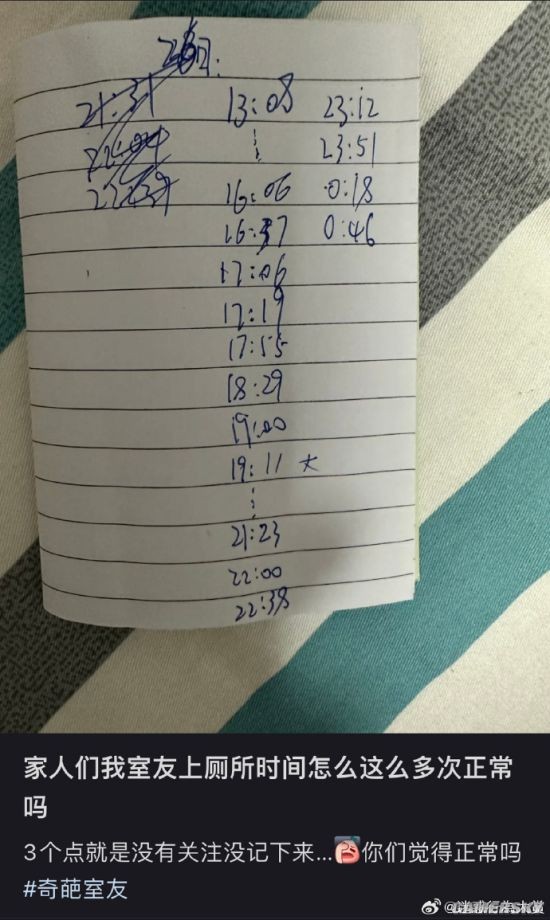 26日:
21:31 13:08 23:12
22:04 ⋮ 23:51
22:39 16:06 0:18
16:37 0:46
17:06
17:19
17:55
18:29
19:00
19:11 大
⋮
21:23
22:00
22:38
家人们我室友上厕所时间怎么这么多次正常
吗
3个点就是没有关注没记下来...你们觉得正常吗
#奇葩室友